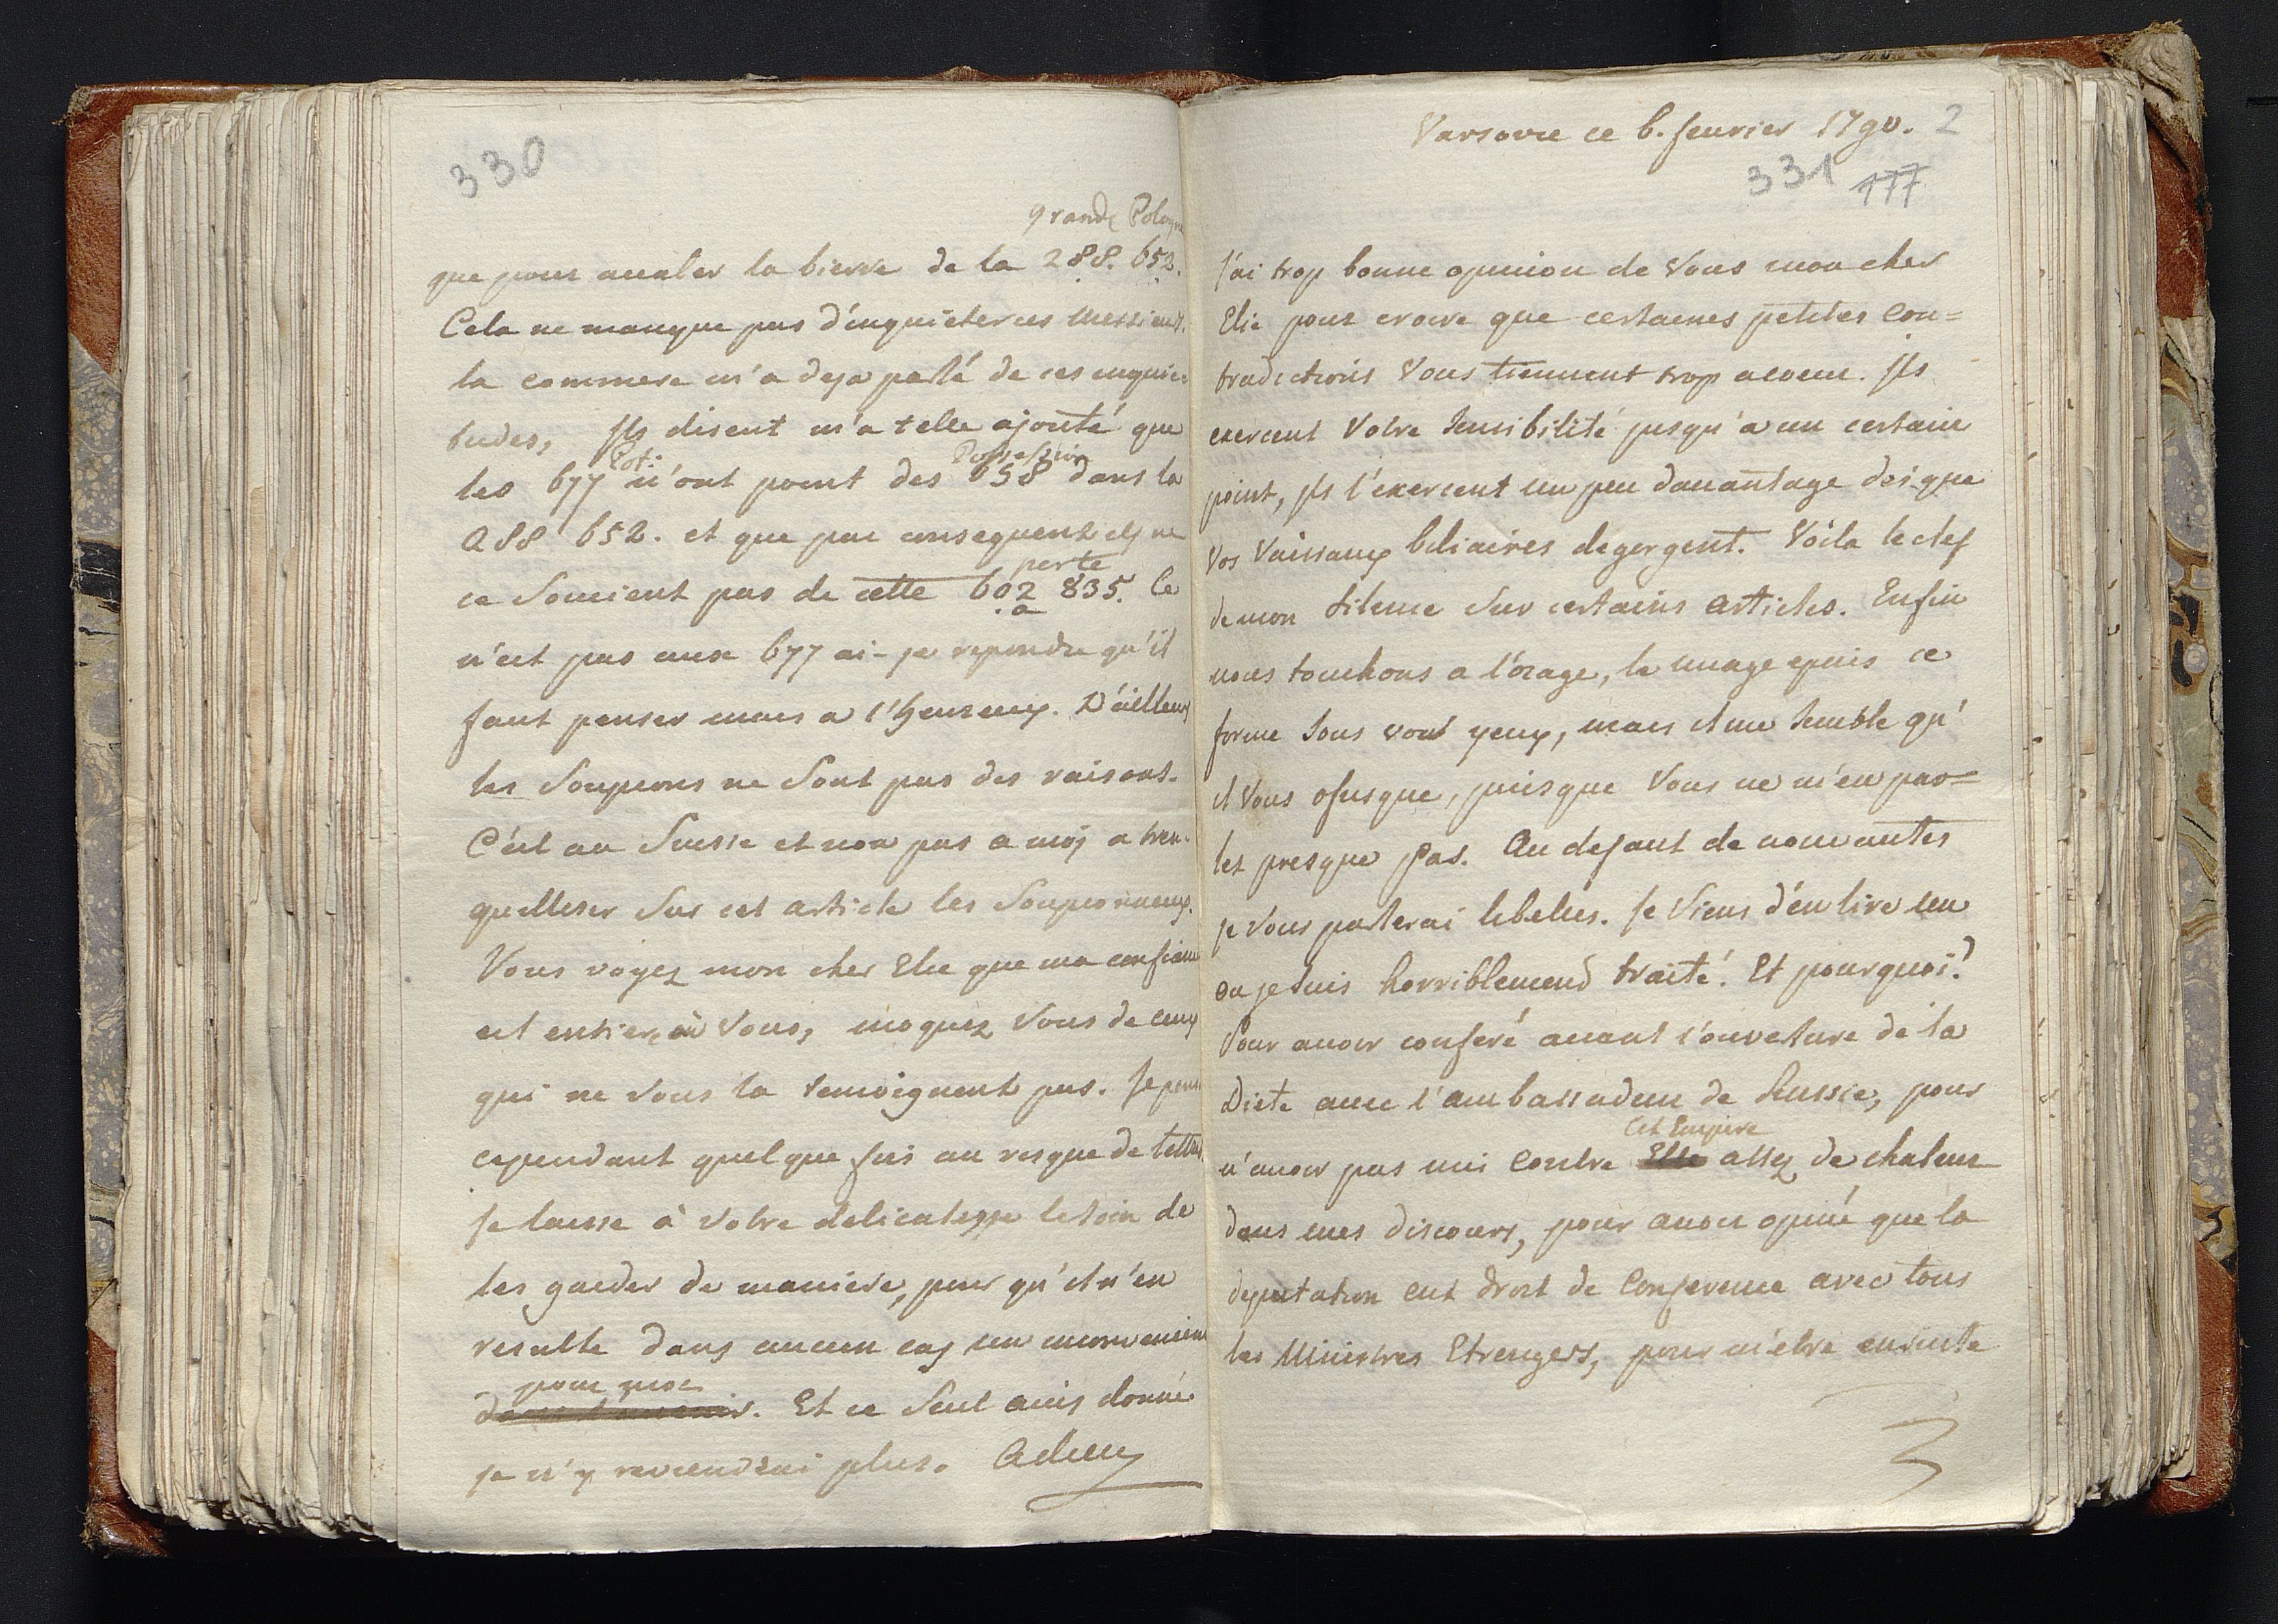 330
grande Pologne
que pour avaler la bierre de la 288. 652.
Cela ne manque pas d'inquieter ces Messieurs.
la commere m'a deja parlé de ces inquie-
tudes, Ils disent m'a telle ajouté que
Pot: Possession
les 677 n'ont point des 658 dans la
288 652. et que par consequent ils ne
perte
ce soucient pas de cette 602 835. Ce
a
n'est pas aux 677 ai-je repondu qu'il
faut penser mais a l'heureux. D'ailleurs
les soupçons ne sont pas des raisons.
C'est au Suisse et non pas a moi a tran-
quilliser sur cet article les soupçonneux.
Vous voyez mon cher Elie que ma confiance
est entiere en Vous, moquez Vous de ceux
qui ne vous la temoignent pas. Je pense
cependant quelque fois au risque de lettres
Je laisse à Votre delicatesse le soin de
les garder de maniere, pour qu'il n'en
resulte dans aucun cas un inconvenient
pour moi
dans l'avenir. Et ce seul avis donné
je n'y reviendrai plus. Adieu
Varsovie ce 6. fevrier 1790. 2
331 177
J'ai trop bonne opinion de Vous mon cher
Elie pour croire que certaines petites con=
tradictions Vous tiennent trop a coeur. Ils
exercent Votre sensibilité jusqu'a un certain
point, ils l'exercent un peu davantage des que
Vos Vaissaux biliaires degorgent. Voila le clef
de mon silence sur certains articles. Enfin
nous touchons a l'orage, le nuage epais ce
forme sous vous yeux, mais il me semble qu'
il Vous ofusque, puisque Vous ne m'en par=
lez presque pas. Au defaut de nouvautes
je Vous parlerai libelles. Je Viens d'en lire un
ou je suis horriblement traité. Et pourquoi?
Pour avoir conferé avant l'ouverture de la
Diete avec l'ambassadeur de Russie, pour
Cet Empire
n'avoir pas mis contre Elle assez de chaleur
dans mes discours, pour avoir opiné que la
deputation eut droit de Conference avec tous
les Ministres Etrengers, pour m'etre ensuite